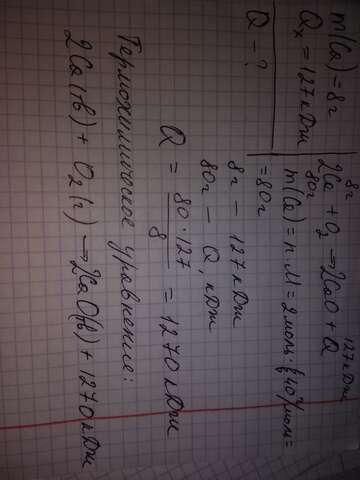 m(Ca) = 8г
Qx = 127 кДж
Q - ?
8г 127 кДж
2Ca + O2 → 2CaO + Q
80г
m(Ca) = n · M = 2 моль · 40 г/моль =
= 80г
8г - 127 кДж
80г - Q, кДж
Q = 80 · 127 / 8 = 1270 кДж
Термохимическое уравнение:
2Ca(тв) + O2(г) → 2CaO(в) + 1270 кДж